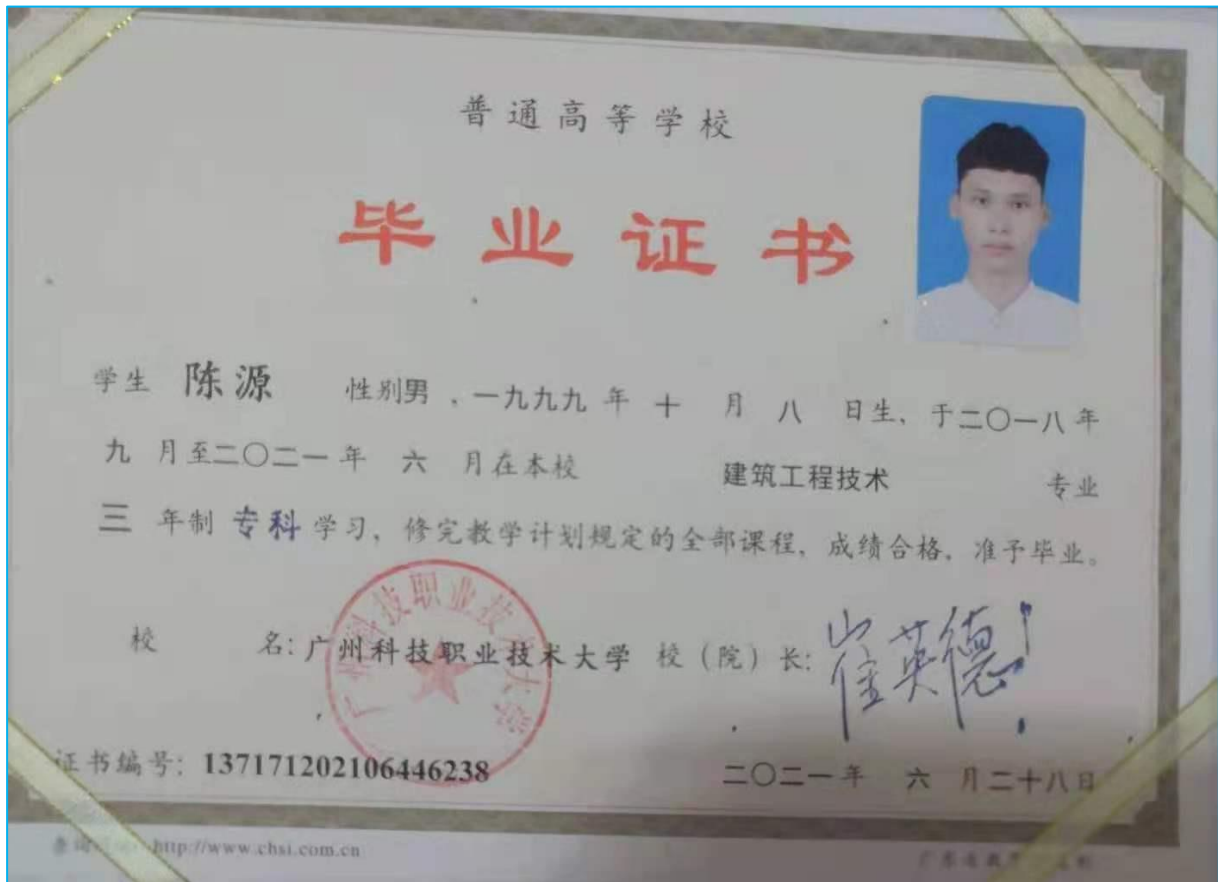 普通高等学校
毕业证书
学生 陈源 性别男，一九九九年 十 月 八 日生，于二〇一八年
九 月至二〇二一年 六 月在本校 建筑工程技术 专业
三 年制 专科 学习，修完教学计划规定的全部课程，成绩合格，准予毕业。
广州科技职业技术大学
校 名：广州科技职业技术大学 校（院）长：崔英德
证书编号：137171202106446238 二〇二一年 六 月二十八日
http://www.chsi.com.cn